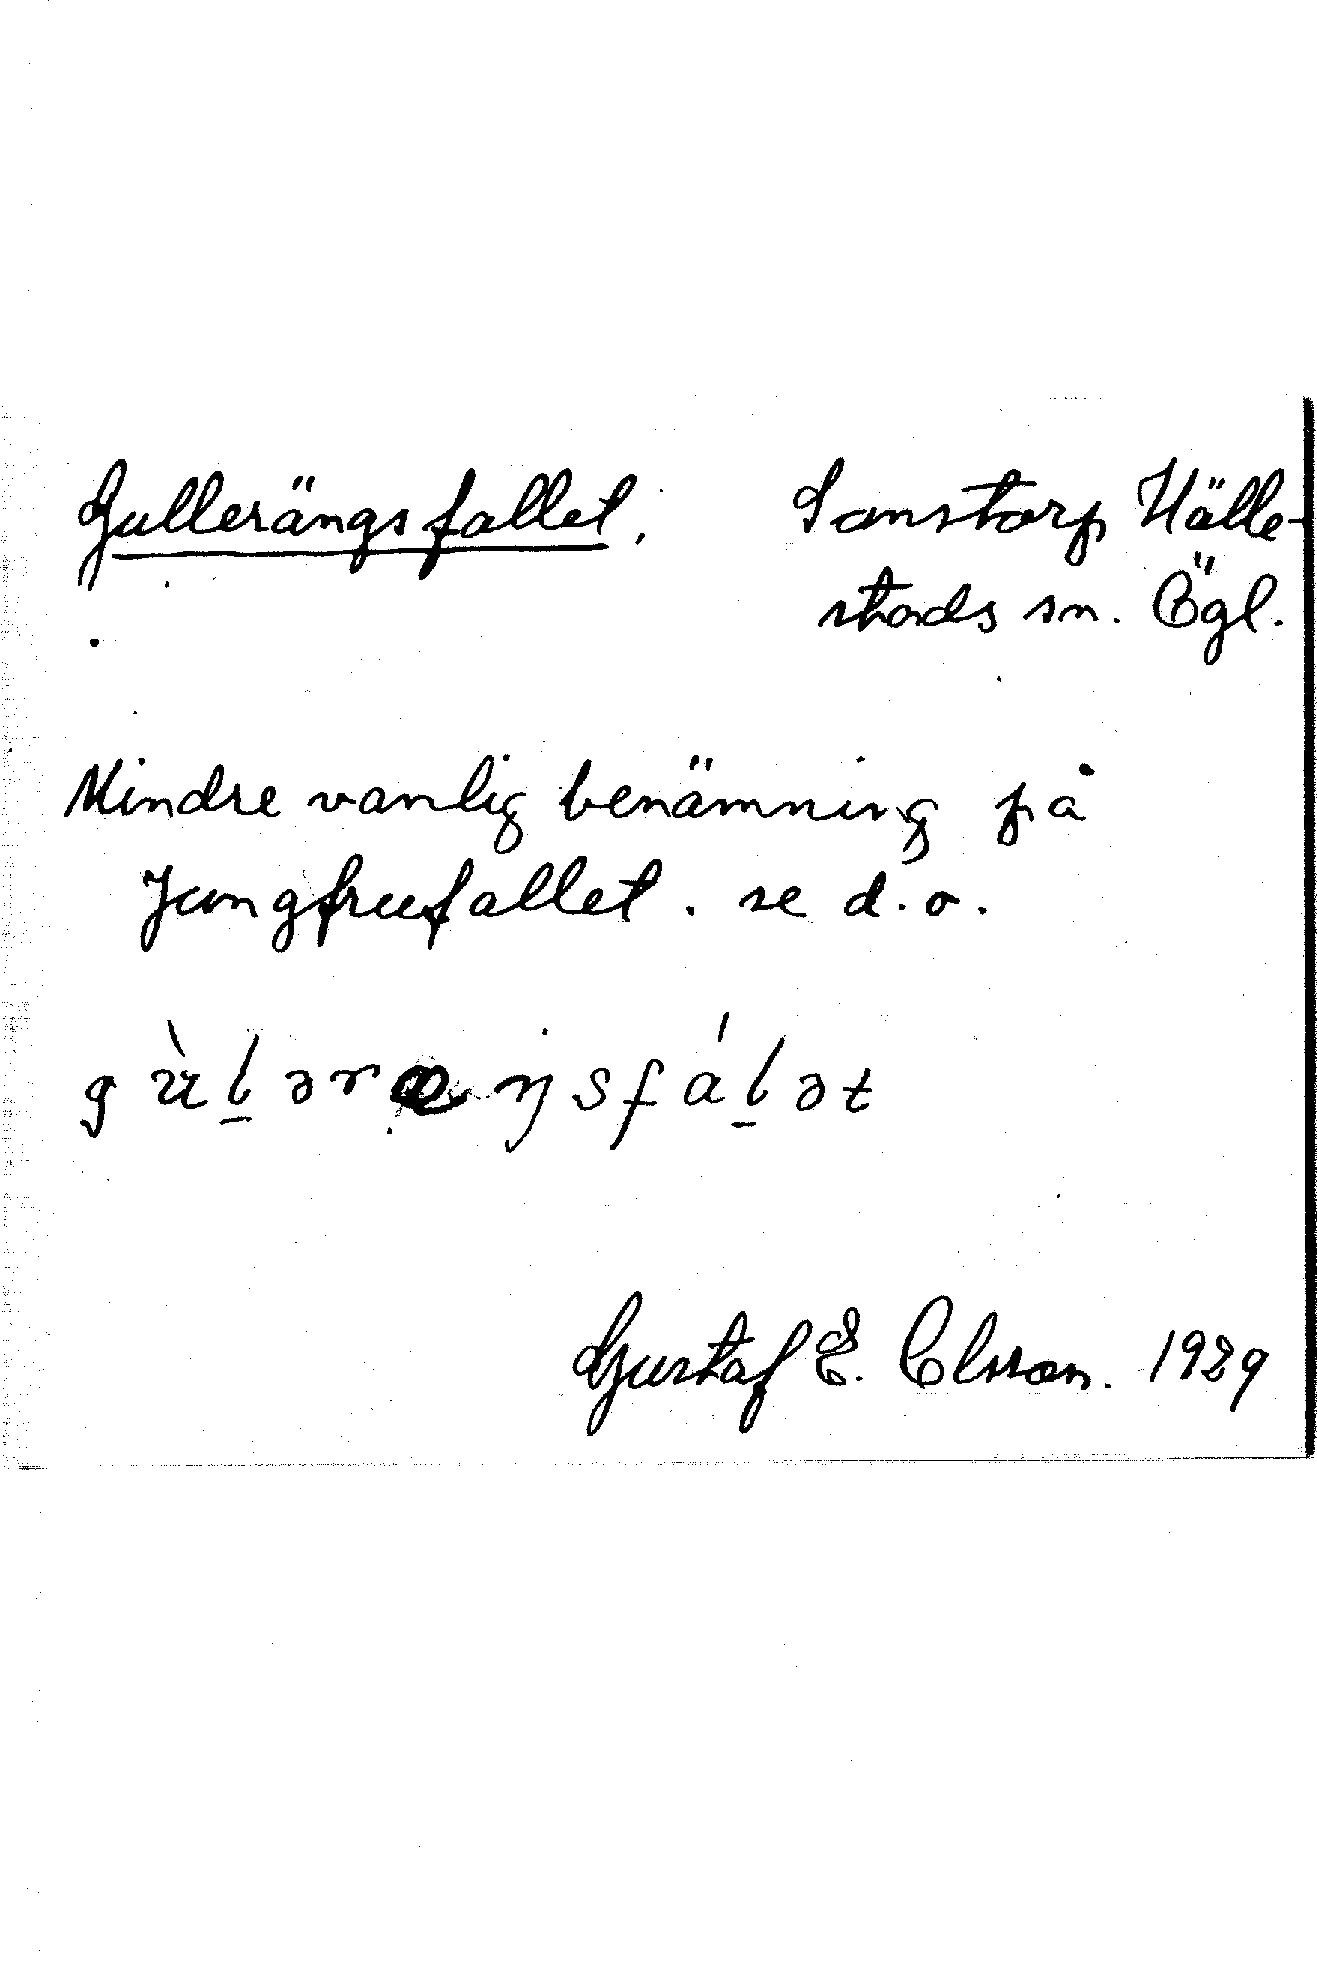 Gullerängsfallet. Sonstorp Hälle-
stads sn. Ögl.
Mindre vanlig benämning på
Jungfrufallet. se d.o.
gùl̠əræŋsfál̠ət
Gustaf E. Olsson. 1929